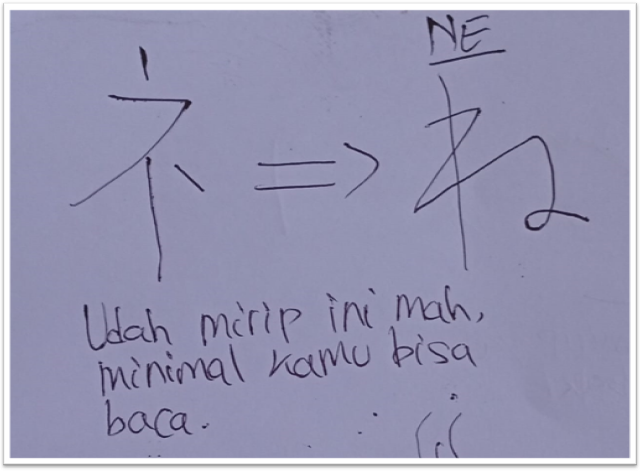 NE
ネ => ね
Udah mirip ini mah,
minimal kamu bisa
baca.